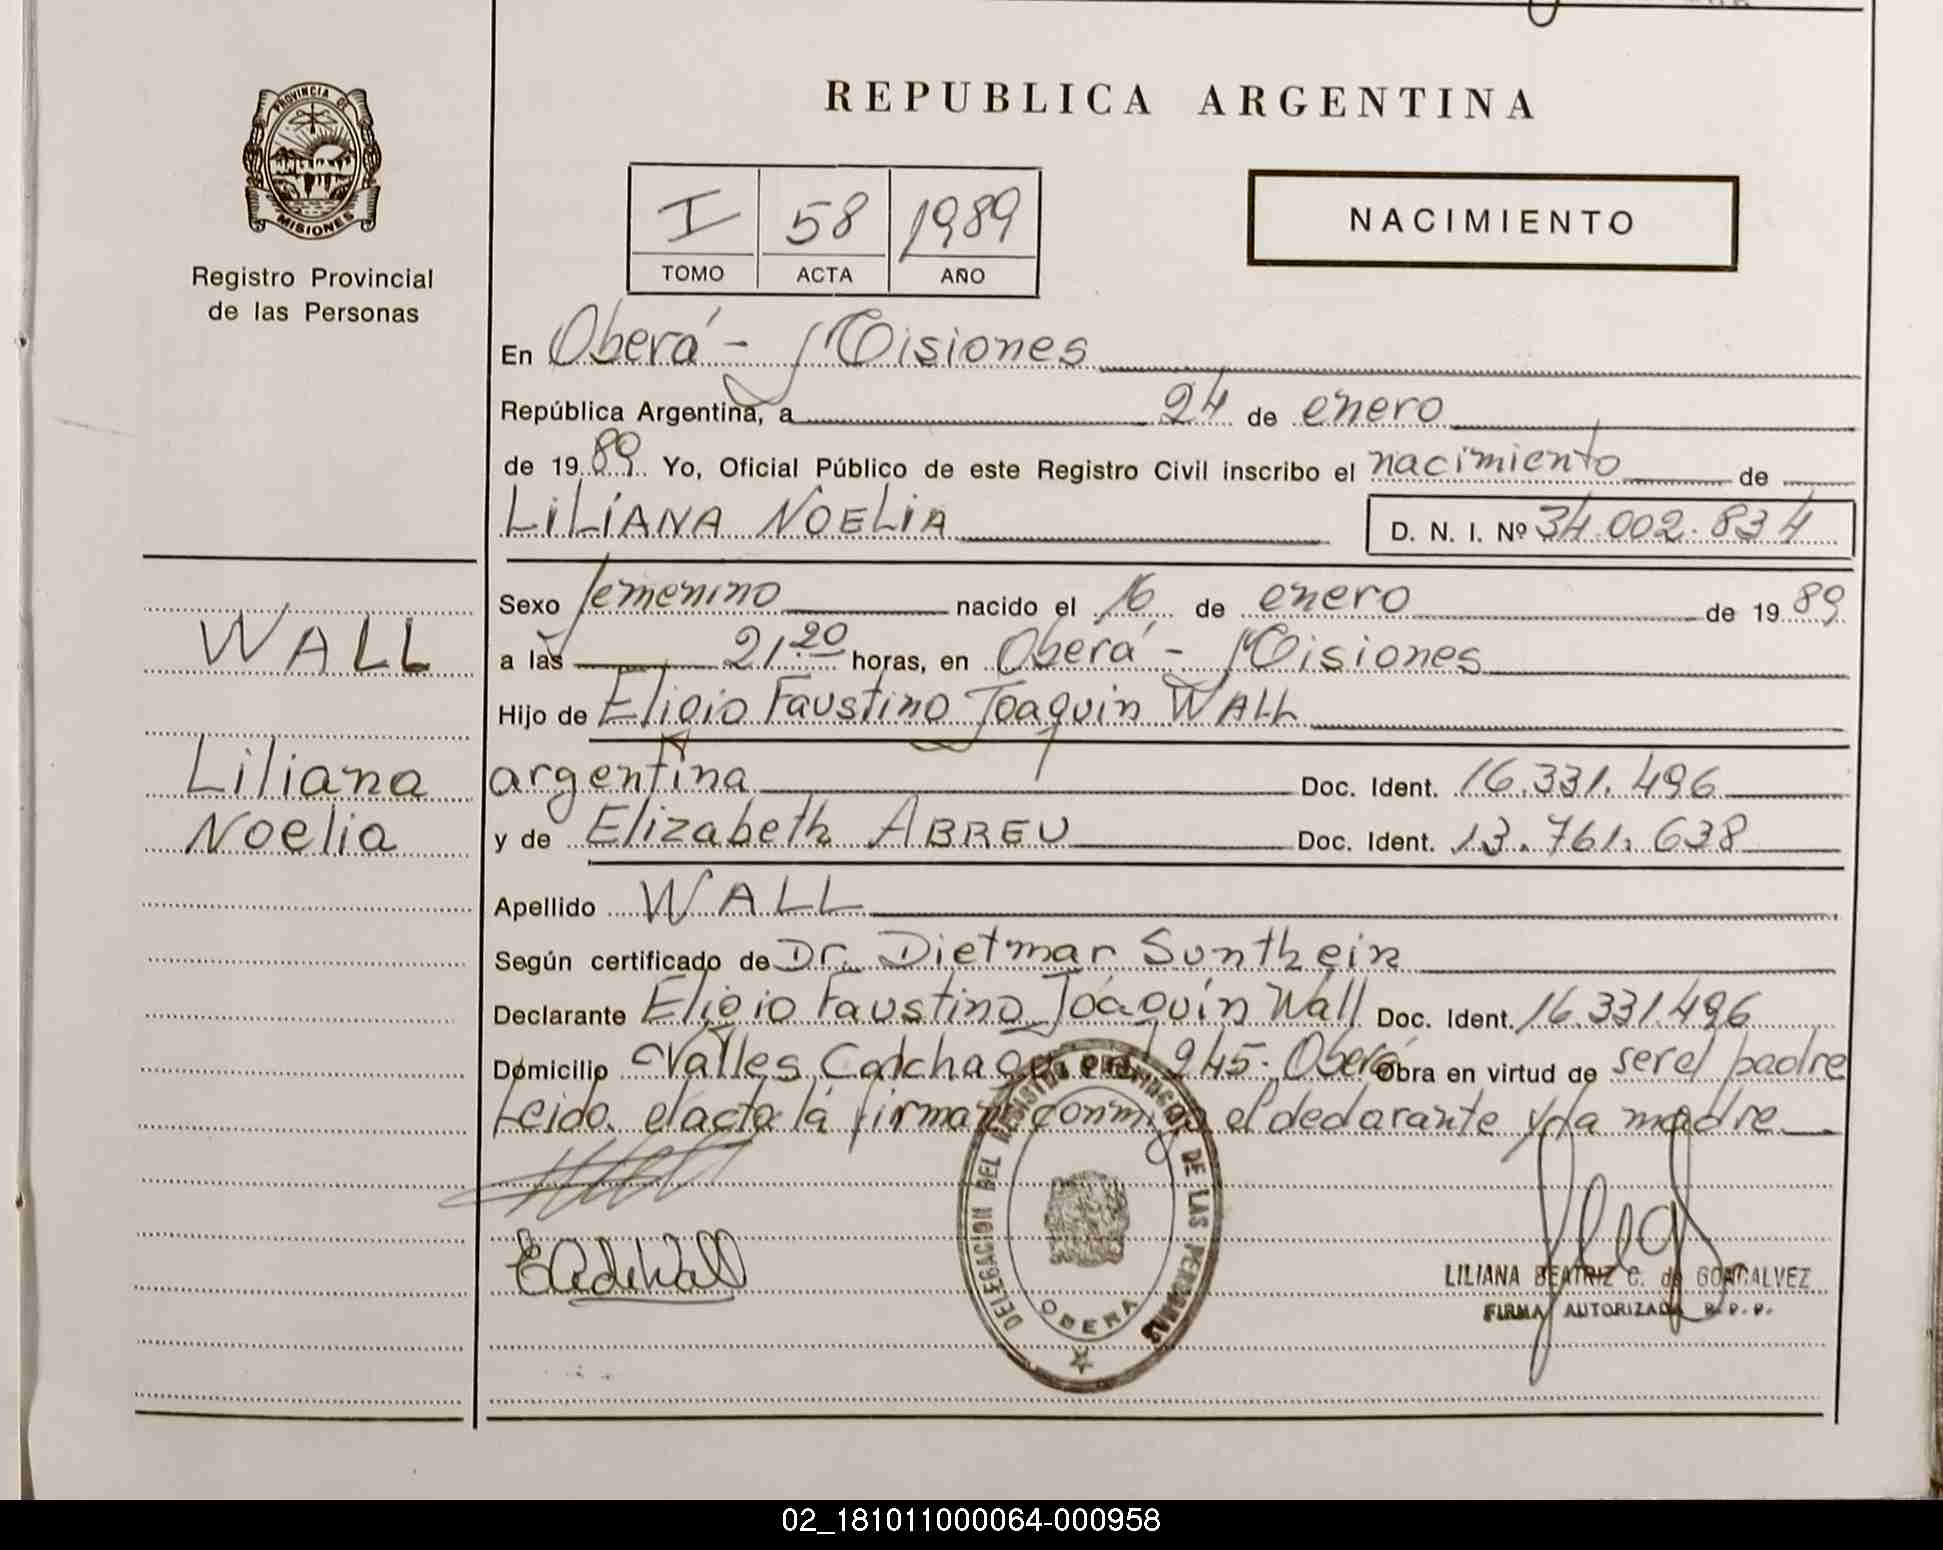 PROVINCIA DE
MISIONES
Registro Provincial
de las Personas
REPUBLICA ARGENTINA
I 58 1989
TOMO ACTA AÑO
NACIMIENTO
En Oberá - Misiones
República Argentina, a 24 de enero
de 1989 Yo, Oficial Público de este Registro Civil inscribo el nacimiento de
LILIANA NOELIA D. N. I. Nº 34.002.834
Sexo femenino nacido el 16 de enero de 1989
WALL
a las 21.20 horas, en Oberá - Misiones
Hijo de Eligio Faustino Joaquin WALL
Liliana
Noelia
argentina Doc. Ident. 16.331.496
y de Elizabeth ABREU Doc. Ident. 13.761.638
Apellido WALL
Según certificado de Dr. Dietmar Sonthein
Declarante Eligio Faustino Joaquín Wall Doc. Ident. 16.331.496
Domicilio Valles Calchaquíes 1245. Oberá Obra en virtud de ser el padre
Leida el acta la firman conmigo el declarante y la madre
E A de Wall
DELEGACION DEL REGISTRO PROVINCIAL DE LAS PERSONAS
OBERA
LILIANA BEATRIZ C. de GONCALVEZ
FIRMA AUTORIZADA R.P.P.
02_181011000064-000958